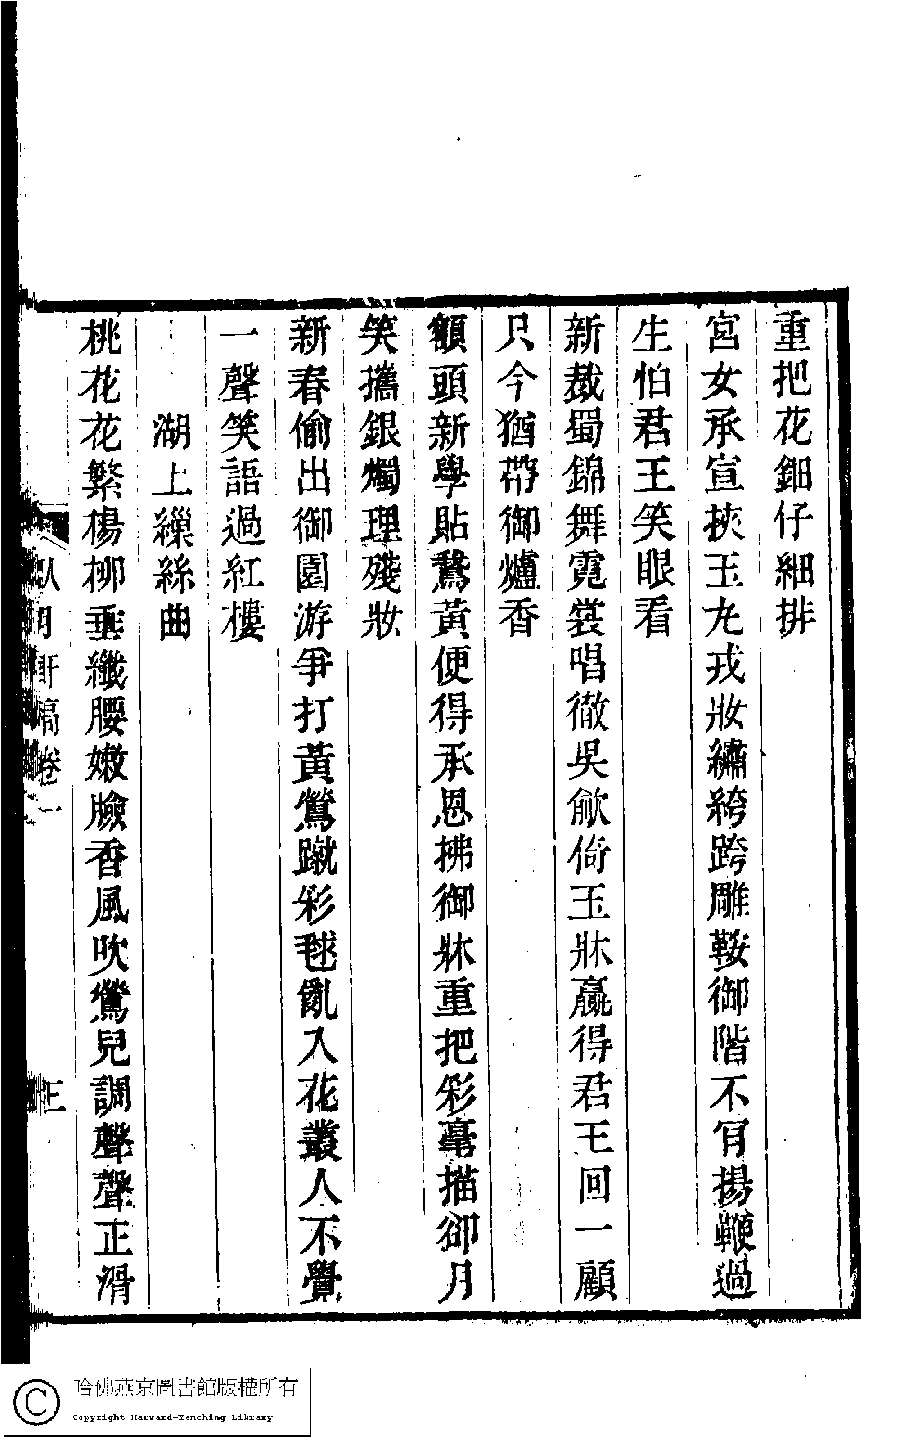 重把花鈿仔細排
宮女承宣挾玉丸戎妝繡絝跨雕鞍御階不肎揚鞭過
生怕君王笑眼看
新裁蜀錦舞霓裳唱徹吳歈倚玉牀贏得君王回一顧
只今猶帶御爐香
額頭新學貼鵞黃便得承恩拂御牀重把彩毫描卻月
笑攜銀燭理殘妝
新春偷出御園游爭打黃鶯蹴彩毬亂入花叢人不覺
一聲笑語過紅樓
湖上繅絲曲
桃花花繁楊柳垂纖腰嫩臉香風吹鶯兒調聲聲正滑
稿卷一
哈佛燕京圖書館版權所有
Copyright Harvard-Yenching Library